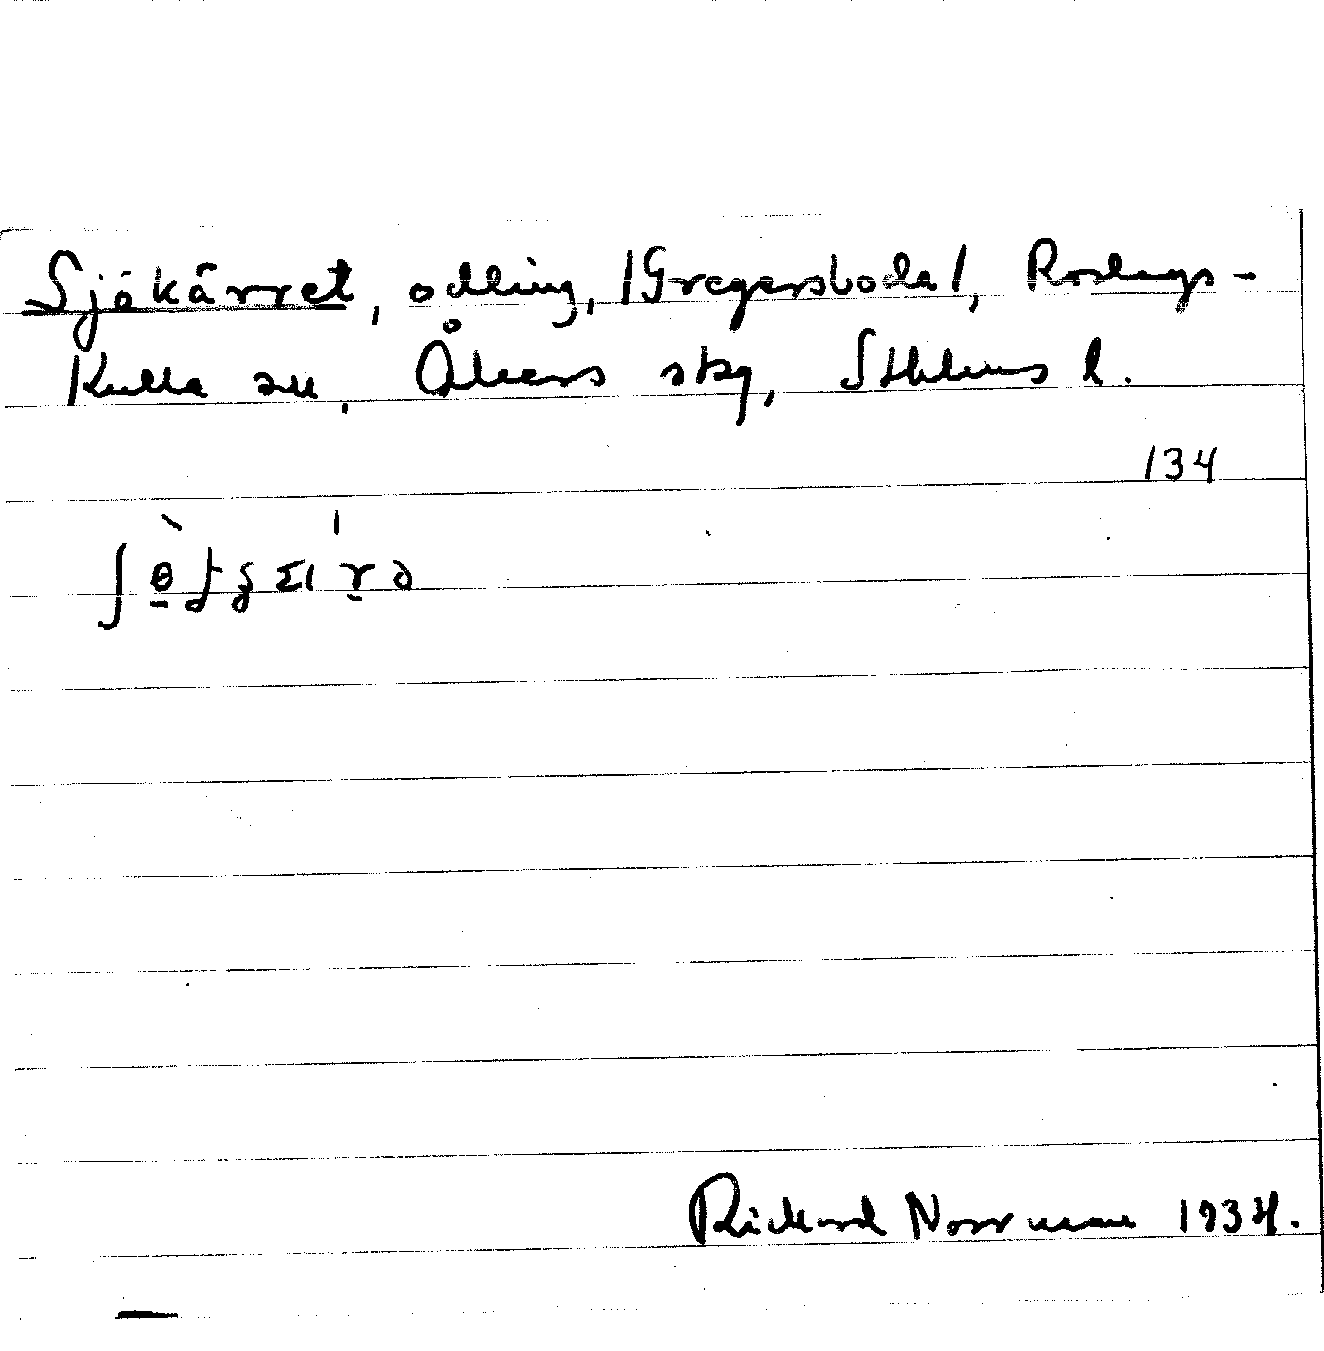 Sjökärret, odling, /Gregersboda/, Roslags-
Kulla sn, Åkers skg, Sthlms l.
134
Rickard Norrman 1934.